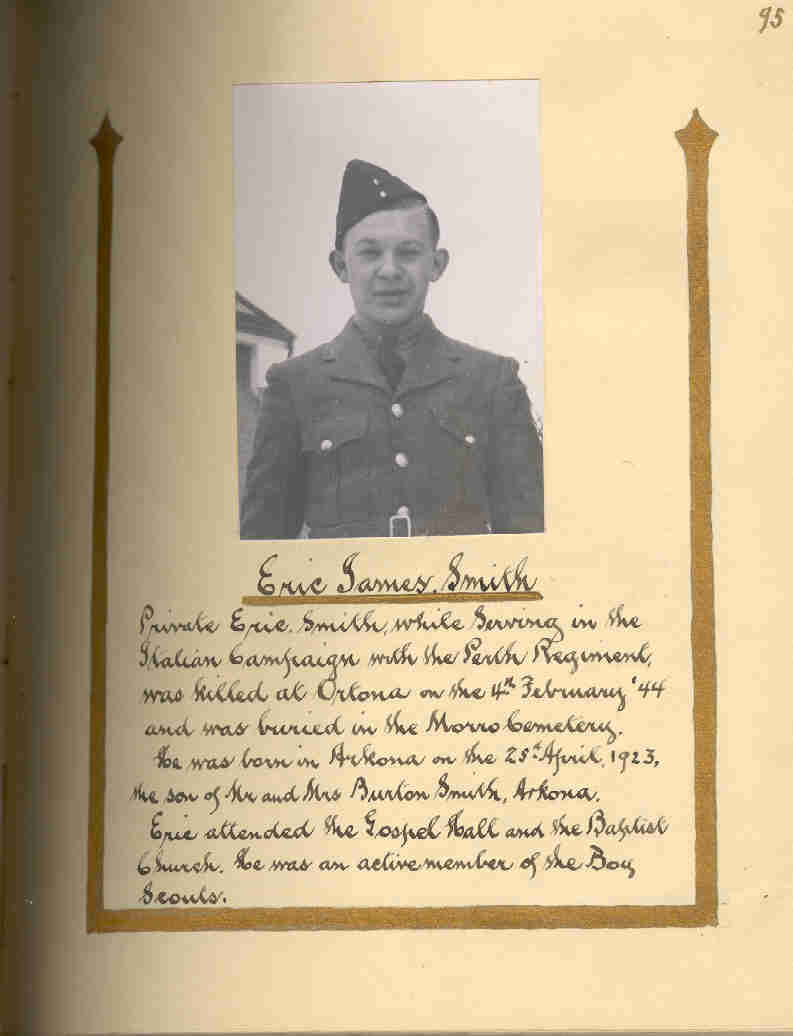 95
Eric James Smith
Private Eric Smith, while serving in the
Italian Campaign with the Perth Regiment,
was killed at Ortona on the 4th February '44
and was buried in the Morro Cemetery.
He was born in Arkona on the 25th April, 1923,
the son of Mr and Mrs Burton Smith, Arkona.
Eric attended the Gospel Hall and the Baptist
Church. He was an active member of the Boy
Scouts.